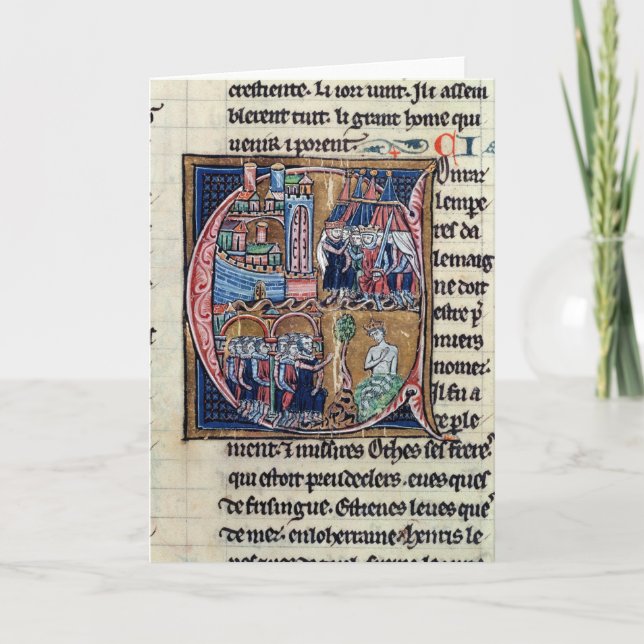 crestiente. Li iorz vint. Il assem
blerent tuit. li grant home qui
uenir i porent. CI
Onraz
lempe
res da
lemaig
ne doit
estre p
miers
nomez
Il fu a
cel ple
ment. & missires Othes ses freres
qui estoit preudeclers. eues ques
de frisingue. Estienes leues que
de mez. en loherraine. henris le